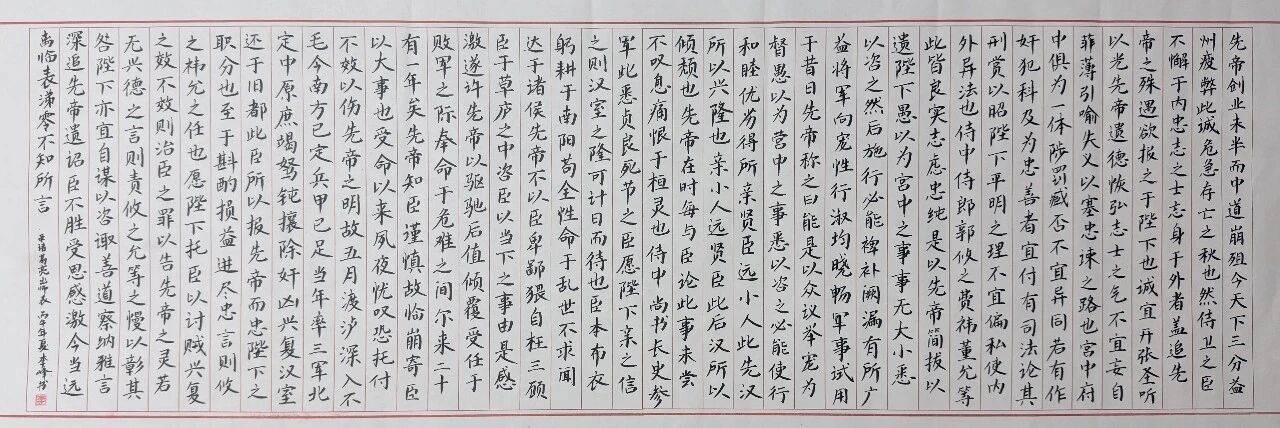 先帝创业未半而中道崩殂今天下三分益
州疲弊此诚危急存亡之秋也然侍卫之臣
不懈于内忠志之士志身于外者盖追先
帝之殊遇欲报之于陛下也诚宜开张圣听
以光先帝遗德恢弘志士之气不宜妄自
菲薄引喻失义以塞忠谏之路也宫中府
中俱为一体陟罚臧否不宜异同若有作
奸犯科及为忠善者宜付有司法论其
刑赏以昭陛下平明之理不宜偏私使内
外异法也侍中侍郎郭攸之费祎董允等
此皆良实志虑忠纯是以先帝简拔以
遗陛下愚以为宫中之事事无大小悉
以咨之然后施行必能裨补阙漏有所广
益将军向宠性行淑均晓畅军事试用
于昔日先帝称之曰能是以众议举宠为
督愚以为营中之事悉以咨之必能使行
和睦优劣得所亲贤臣远小人此先汉
所以兴隆也亲小人远贤臣此后汉所以
倾颓也先帝在时每与臣论此事未尝
不叹息痛恨于桓灵也侍中尚书长史参
军此悉贞良死节之臣愿陛下亲之信
之则汉室之隆可计日而待也臣本布衣
躬耕于南阳苟全性命于乱世不求闻
达于诸侯先帝不以臣卑鄙猥自枉三顾
臣于草庐之中咨臣以当下之事由是感
激遂许先帝以驱驰后值倾覆受任于
败军之际奉命于危难之间尔来二十
有一年矣先帝知臣谨慎故临崩寄臣
以大事也受命以来夙夜忧叹恐托付
不效以伤先帝之明故五月渡泸深入不
毛今南方已定兵甲已足当年率三军北
定中原庶竭驽钝攘除奸凶兴复汉室
还于旧都此臣所以报先帝而忠陛下之
职分也至于斟酌损益进尽忠言则攸
之祎允之任也愿陛下托臣以讨贼兴复
之效不效则治臣之罪以告先帝之灵若
无兴德之言则责攸之允等之慢以彰其
咎陛下亦宜自谋以咨诹善道察纳雅言
深追先帝遗诏臣不胜受恩感激今当远
离临表涕零不知所言
录诸葛亮出师表 丙午年夏 李峰书